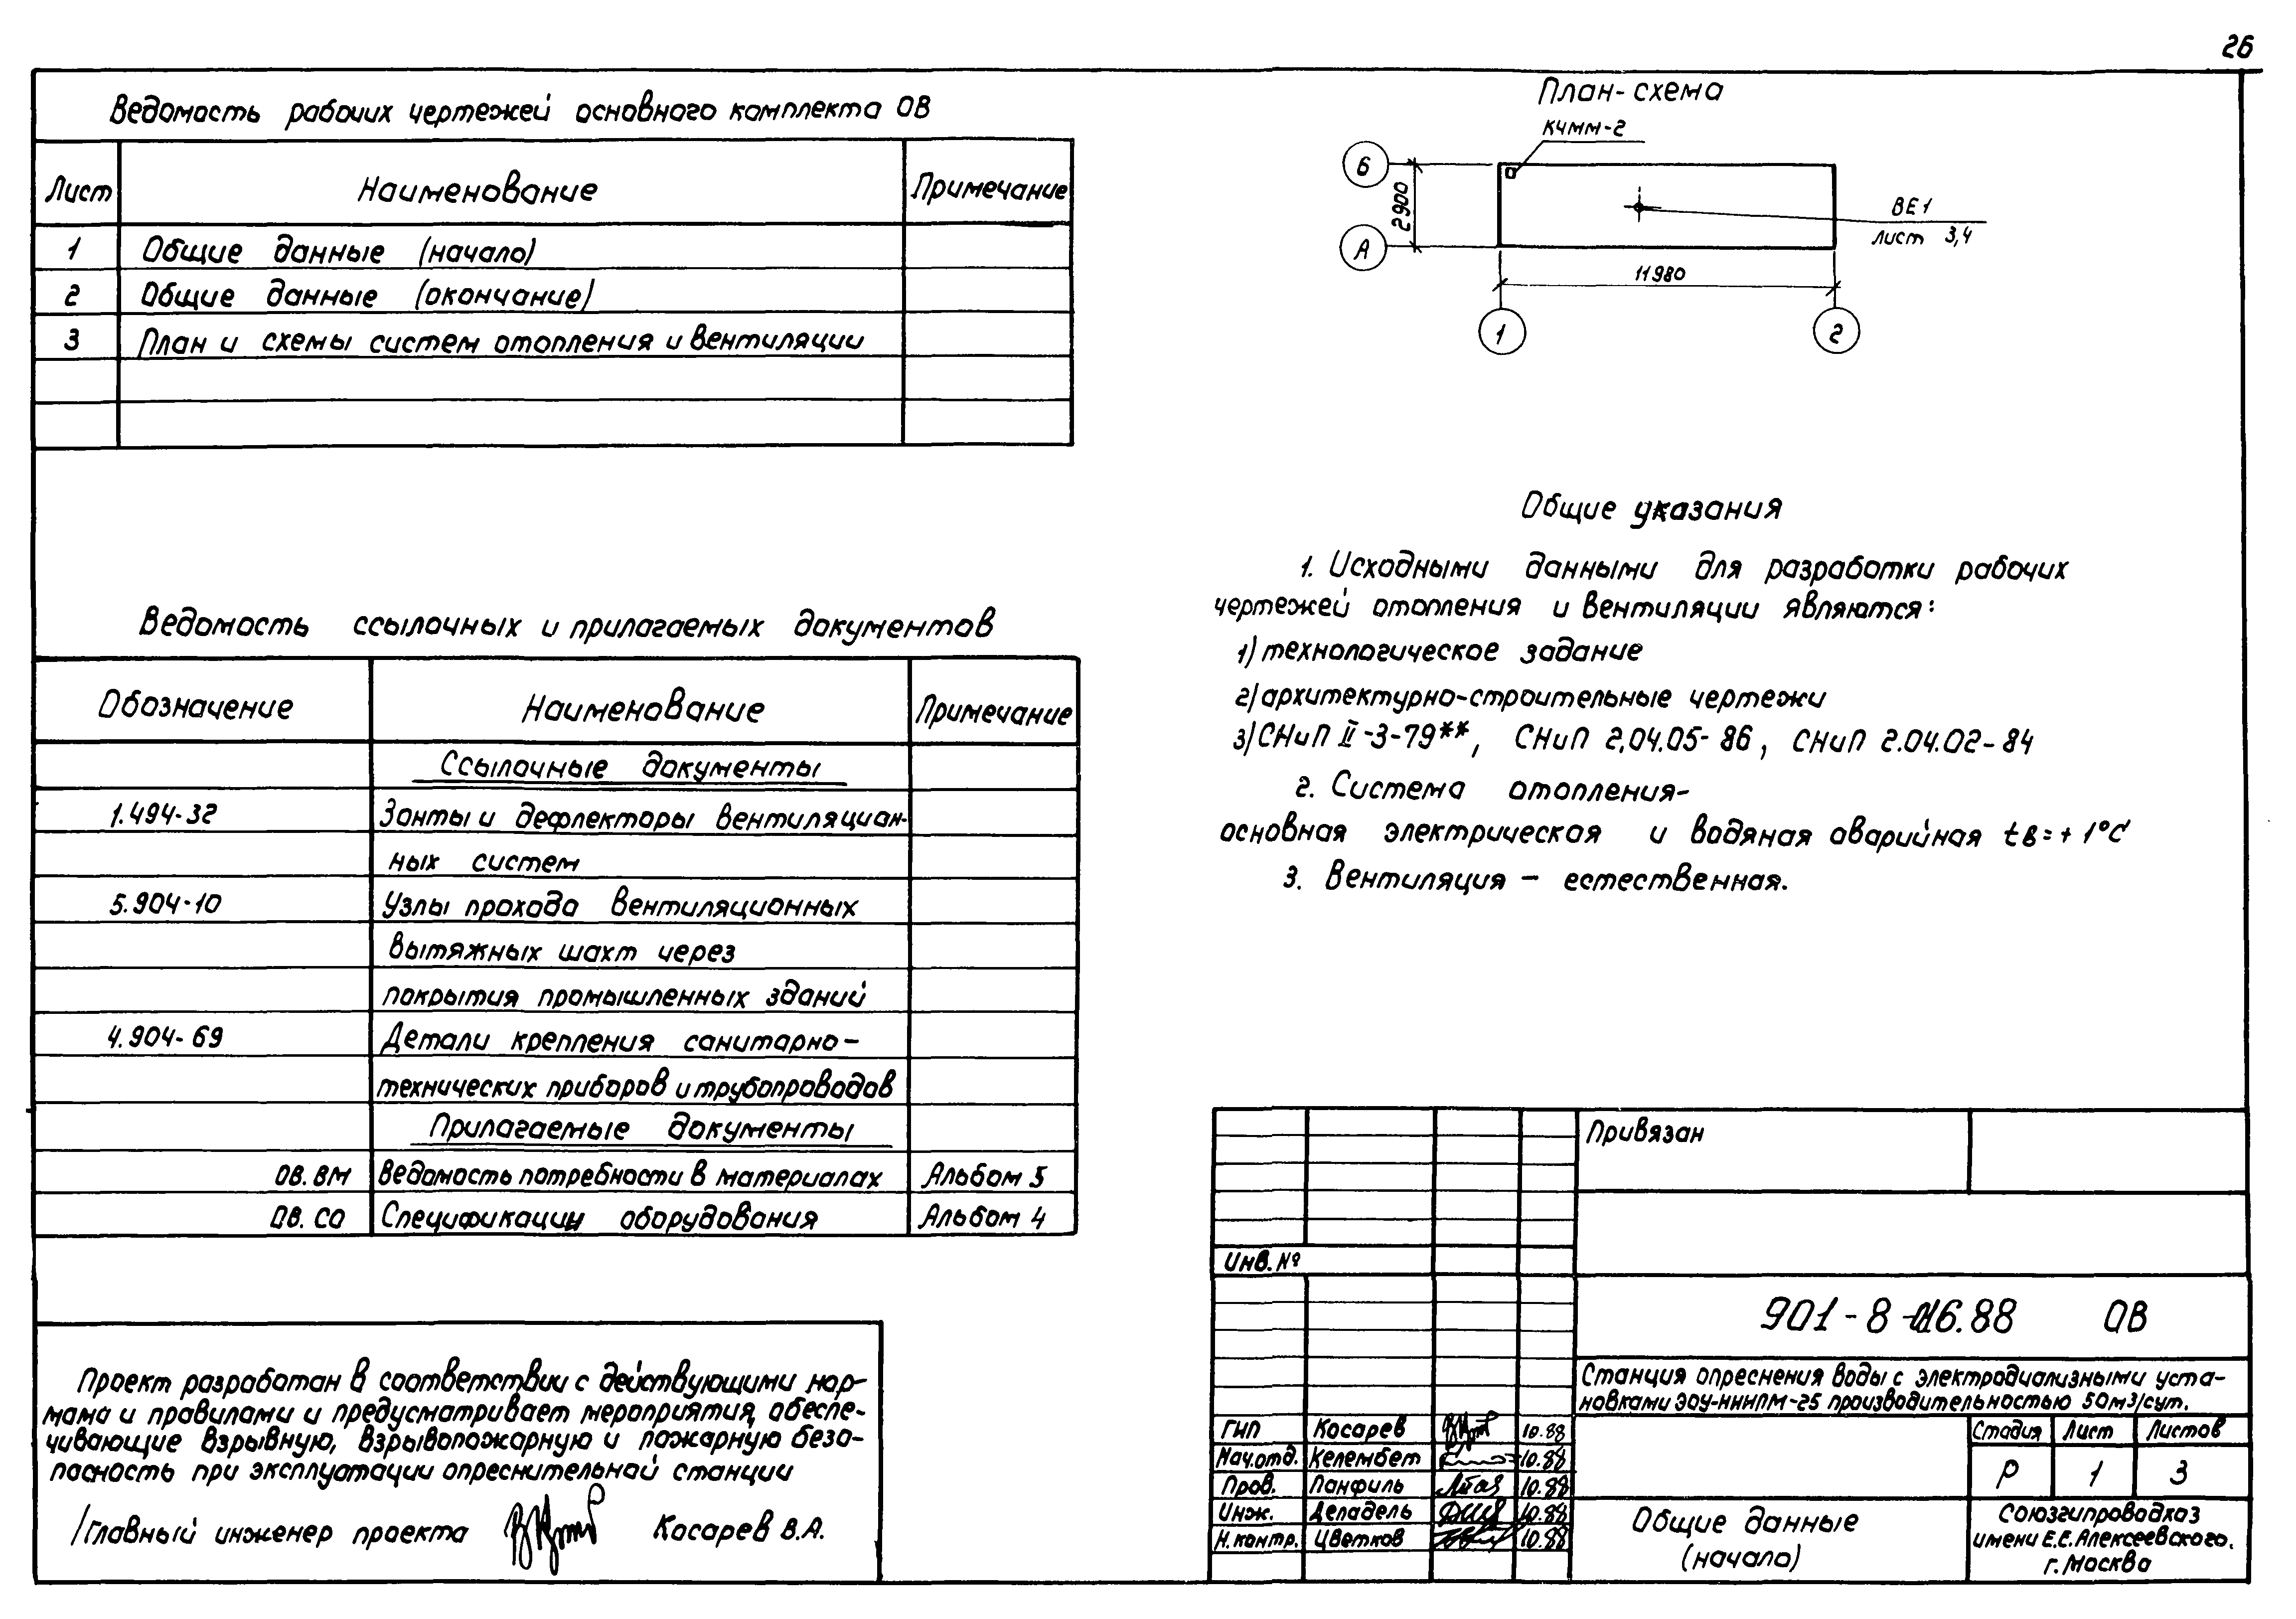 26
Ведомость рабочих чертежей основного комплекта ОВ
Лист Наименование Примечание
1 Общие данные (начало)
2 Общие данные (окончание)
3 План и схемы систем отопления и вентиляции
План-схема
КЧММ-2
Б
2900
А
ВЕ1
лист 3,4
11980
1 2
Общие указания
1. Исходными данными для разработки рабочих
чертежей отопления и вентиляции являются:
1) технологическое задание
2) архитектурно-строительные чертежи
3) СНиП II-3-79**, СНиП 2.04.05-86, СНиП 2.04.02-84
2. Система отопления-
основная электрическая и водяная аварийная tв=+1°С
3. Вентиляция - естественная.
Ведомость ссылочных и прилагаемых документов
Обозначение Наименование Примечание
Ссылочные документы
1.494-32 Зонты и дефлекторы вентиляцион-
ных систем
5.904-10 Узлы прохода вентиляционных
вытяжных шахт через
покрытия промышленных зданий
4.904-69 Детали крепления санитарно-
технических приборов и трубопроводов
Прилагаемые документы
ОВ.ВМ Ведомость потребности в материалах Альбом 5
ОВ.СО Спецификации оборудования Альбом 4
Проект разработан в соответствии с действующими нор-
мами и правилами и предусматривает мероприятия, обеспе-
чивающие взрывную, взрывопожарную и пожарную безо-
пасность при эксплуатации опреснительной станции
Главный инженер проекта Косарев В.А.
Привязан
Инв.№
901-8- 16.88 ОВ
Станция опреснения воды с электродиализными уста-
новками ЭОУ-НИИПМ-25 производительностью 50м³/сут.
ГИП Косарев 10.88
Нач.отд. Келембет 10.88
Пров. Панфиль 10.88
Инж. Деладель 10.88
Н.контр. Цветков 10.88
Стадия Лист Листов
Р 1 3
Общие данные
(начало)
Союзгипроводхоз
имени Е.Е.Алексеевского.
г.Москва